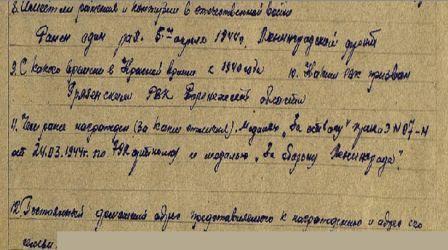 8. Имеет ли ранения и контузии в отечественной войне
Ранен один раз. 5го марта 1944г. Ленинградский фронт
9. С какого времени в Красной армии с 1940 года 10. Каким РВК призван
РВК Воронежской области
11. Чем ранее награжден (за какие отличия). Медалью „За отвагу" приказ № 07-Н
от 24.03.1944г. по и медалью „За оборону Ленинграда".
12. Постоянный домашний адрес представляемого к награждению и адрес его
семьи.